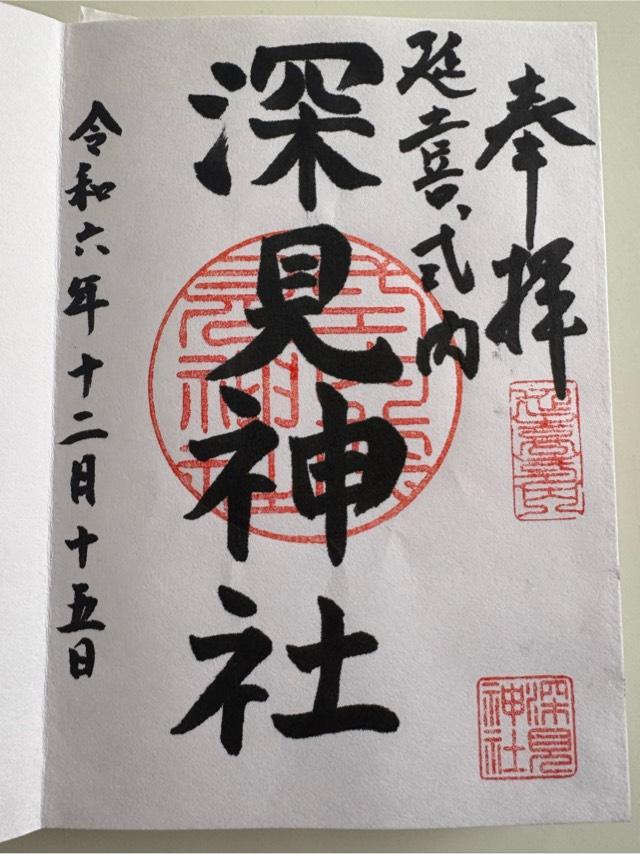 奉拝
延喜式内
深見神社
令和六年十二月十五日
深見
神社